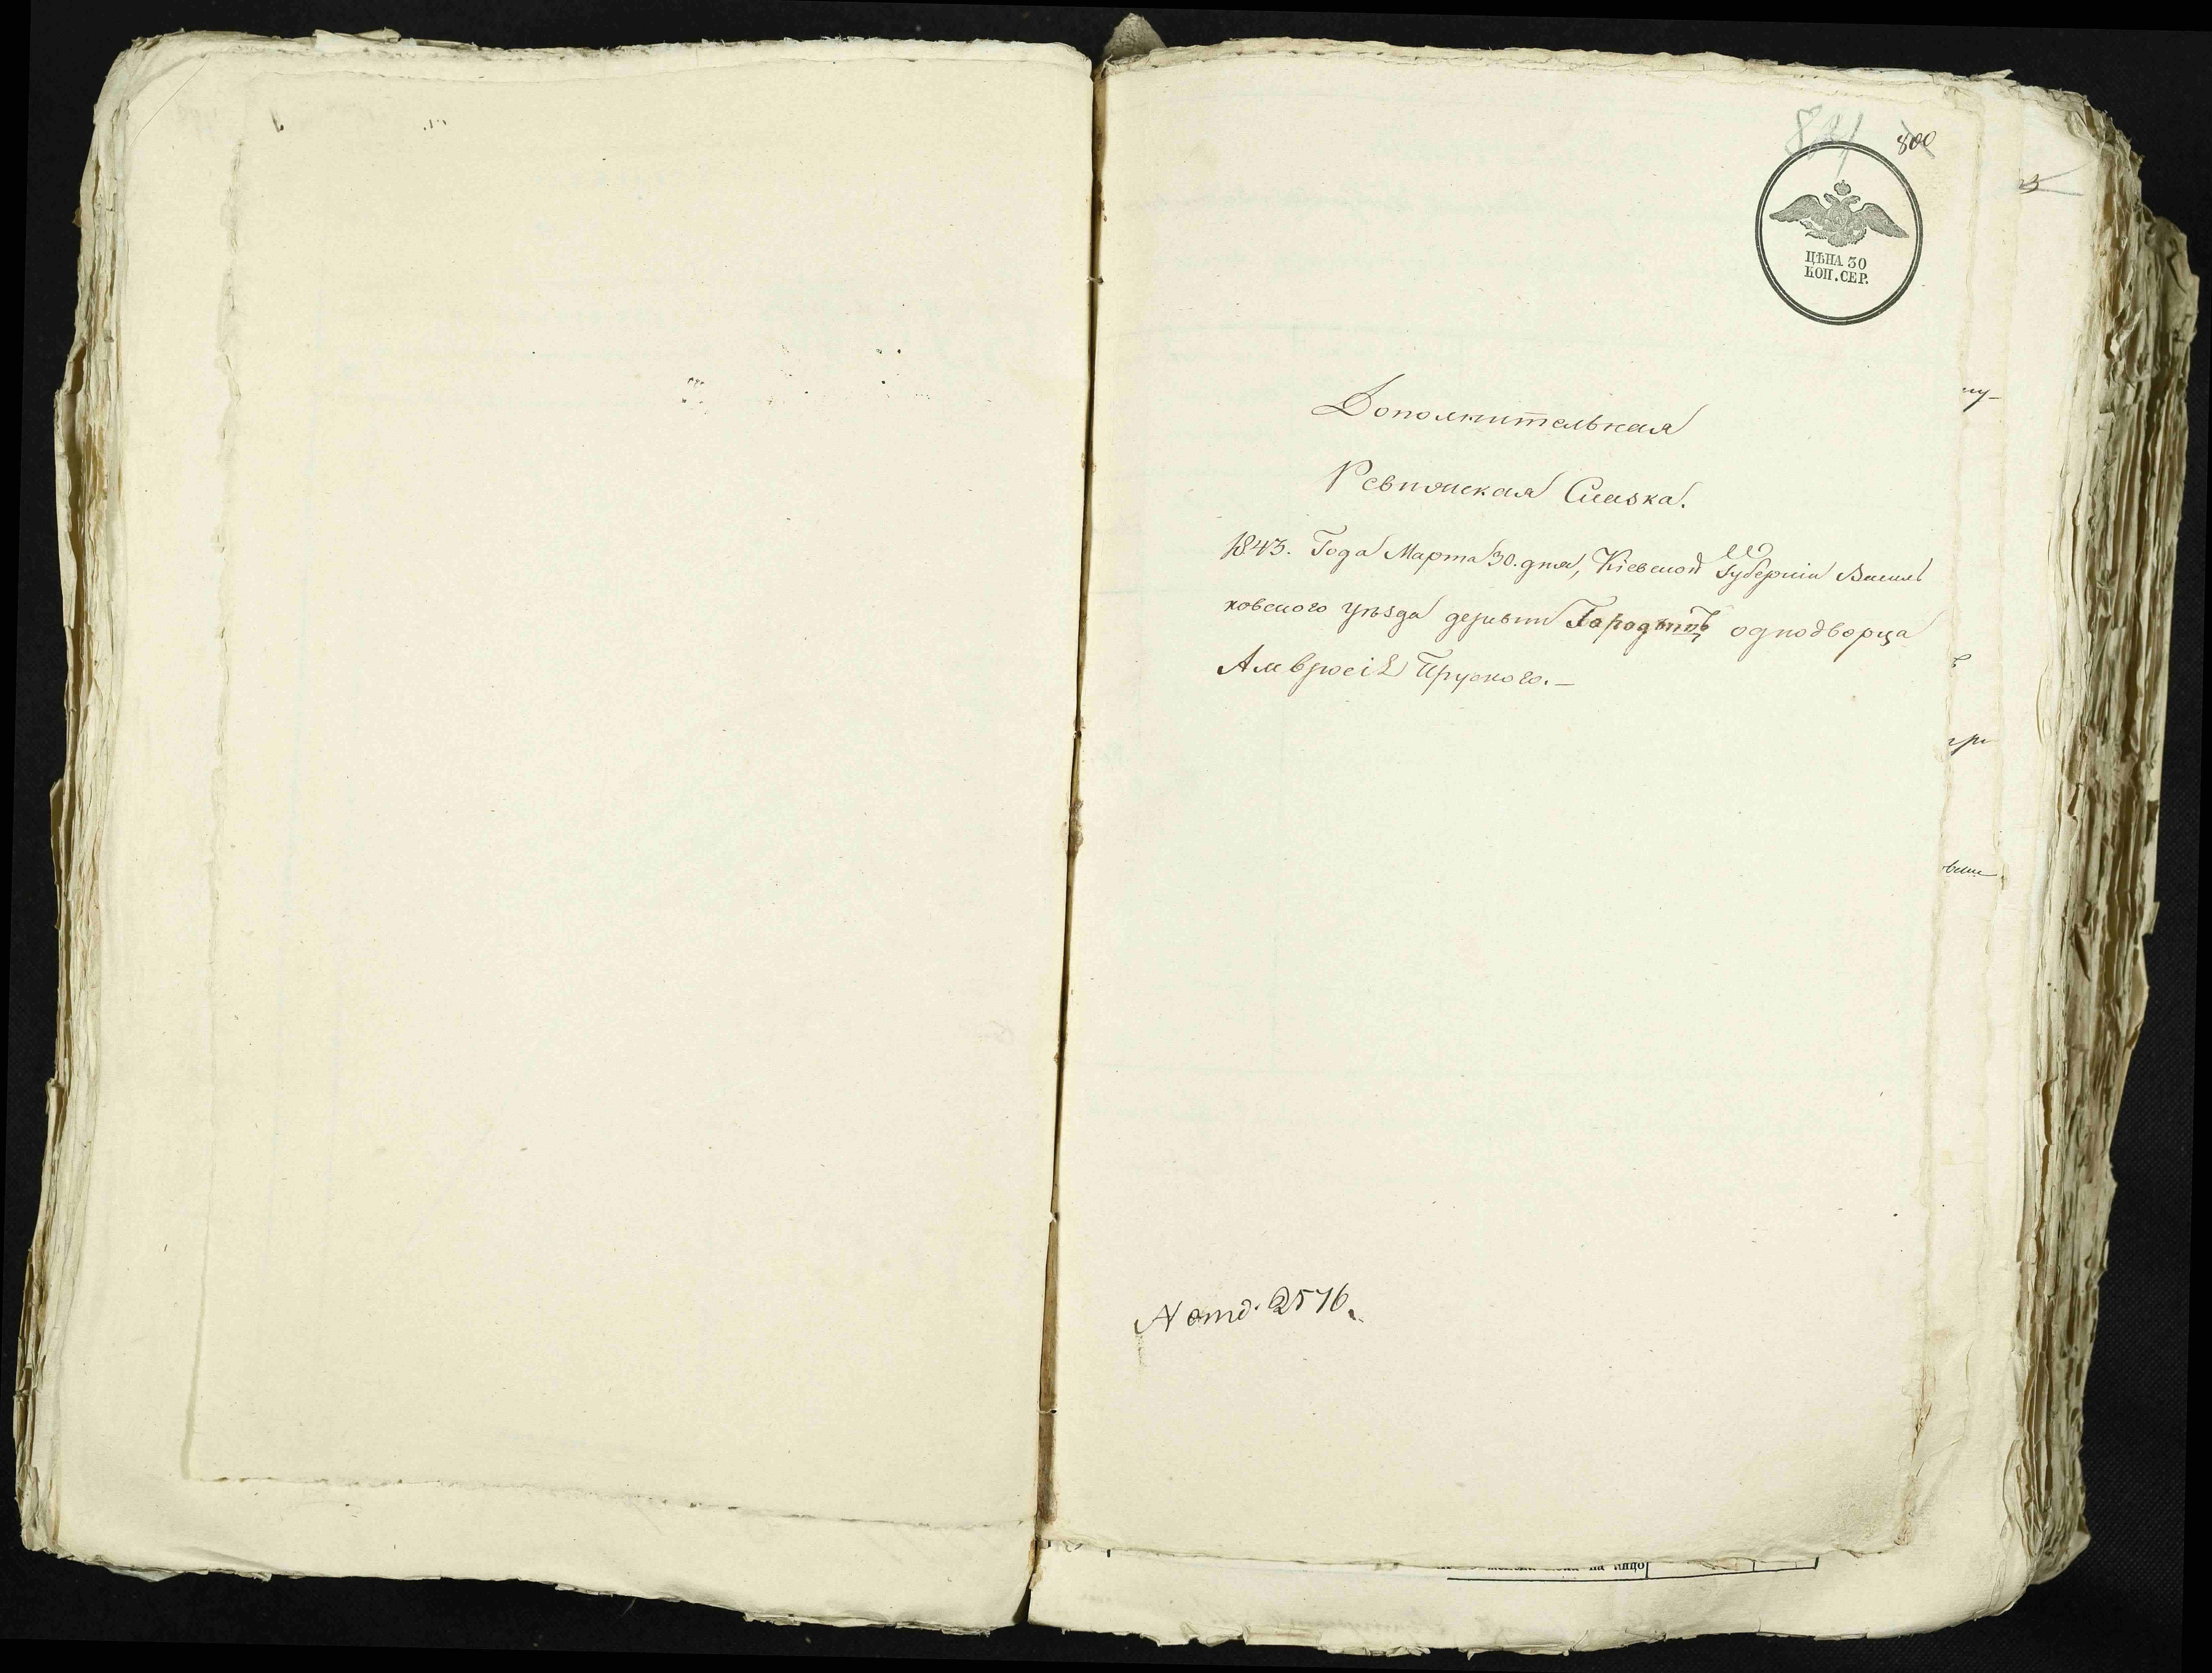 800
ЦѢНА 30
КОП. СЕР.
Дополнительная
Ревижская Сказка.
1843. Года Марта 30. дня, Кіевской Губерніи Василь
ковского уѣзда деревни однодворца
Амвросія Пруского.—
N отд. 2576.
на лицо